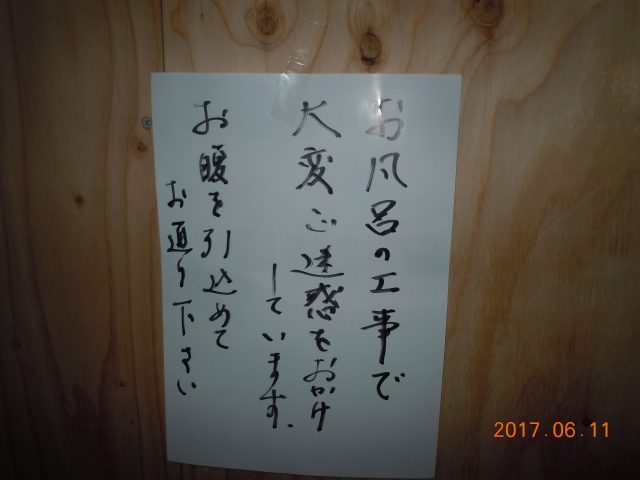 お風呂の工事で
大変ご迷惑をおかけ
しています.
お暖を引込めて
お通り下さい
2017.06.11